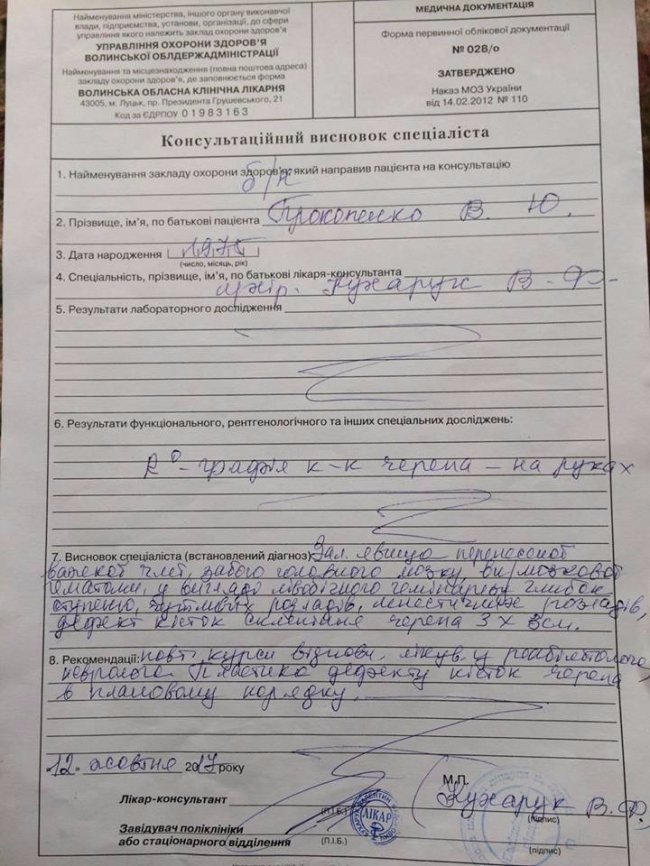 Найменування міністерства, іншого органу виконавчої
влади, підприємства, установи, організації, до сфери
управління якого належить заклад охорони здоров'я
УПРАВЛІННЯ ОХОРОНИ ЗДОРОВ'Я
ВОЛИНСЬКОЇ ОБЛДЕРЖАДМІНІСТРАЦІЇ
Найменування та місцезнаходження (повна поштова адреса)
закладу охорони здоров'я, де заповнюється форма
ВОЛИНСЬКА ОБЛАСНА КЛІНІЧНА ЛІКАРНЯ
43005, м. Луцьк, пр. Президента Грушевського, 21
Код за ЄДРПОУ 01983163
МЕДИЧНА ДОКУМЕНТАЦІЯ
Форма первинної облікової документації
№ 028/о
ЗАТВЕРДЖЕНО
Наказ МОЗ України
від 14.02.2012 № 110
Консультаційний висновок спеціаліста
1. Найменування закладу охорони здоров'я, який направив пацієнта на консультацію
б/н
2. Прізвище, ім'я, по батькові пацієнта Прокопенко В. Ю.
3. Дата народження 1975
(число, місяць, рік)
4. Спеціальність, прізвище, ім'я, по батькові лікаря-консультанта
Кухарук В. Ф.
5. Результати лабораторного дослідження
6. Результати функціонального, рентгенологічного та інших спеціальних досліджень:
R°-графія к-к черепа – на руках
7. Висновок спеціаліста (встановлений діагноз) Зал. явища перенесеної
важкої чмт, забою головного мозку,
гематоми, у вигляді лівобічного геміпарезу глибок.
ступеню, чутливих розладів, розладів,
дефект кісток склепіння черепа 3 х 3см.
8. Рекомендації: повт. курси віднови. лікув. у
невролога. Пластика дефекту кісток черепа
в плановому порядку.
12. жовтня 2017 року
М.П.
Лікар-консультант Кухарук В.Ф.
(П.І.Б.) (підпис)
ЛІКАР
Завідувач поліклініки
або стаціонарного відділення
(П.І.Б.) (підпис)